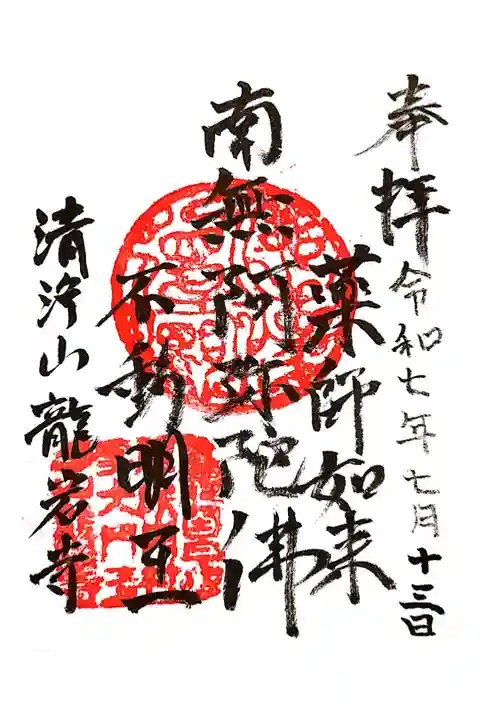 奉拝
令和七年七月十三日
薬師如来
南無阿弥陀佛
不動明王
清浄山龍岩寺